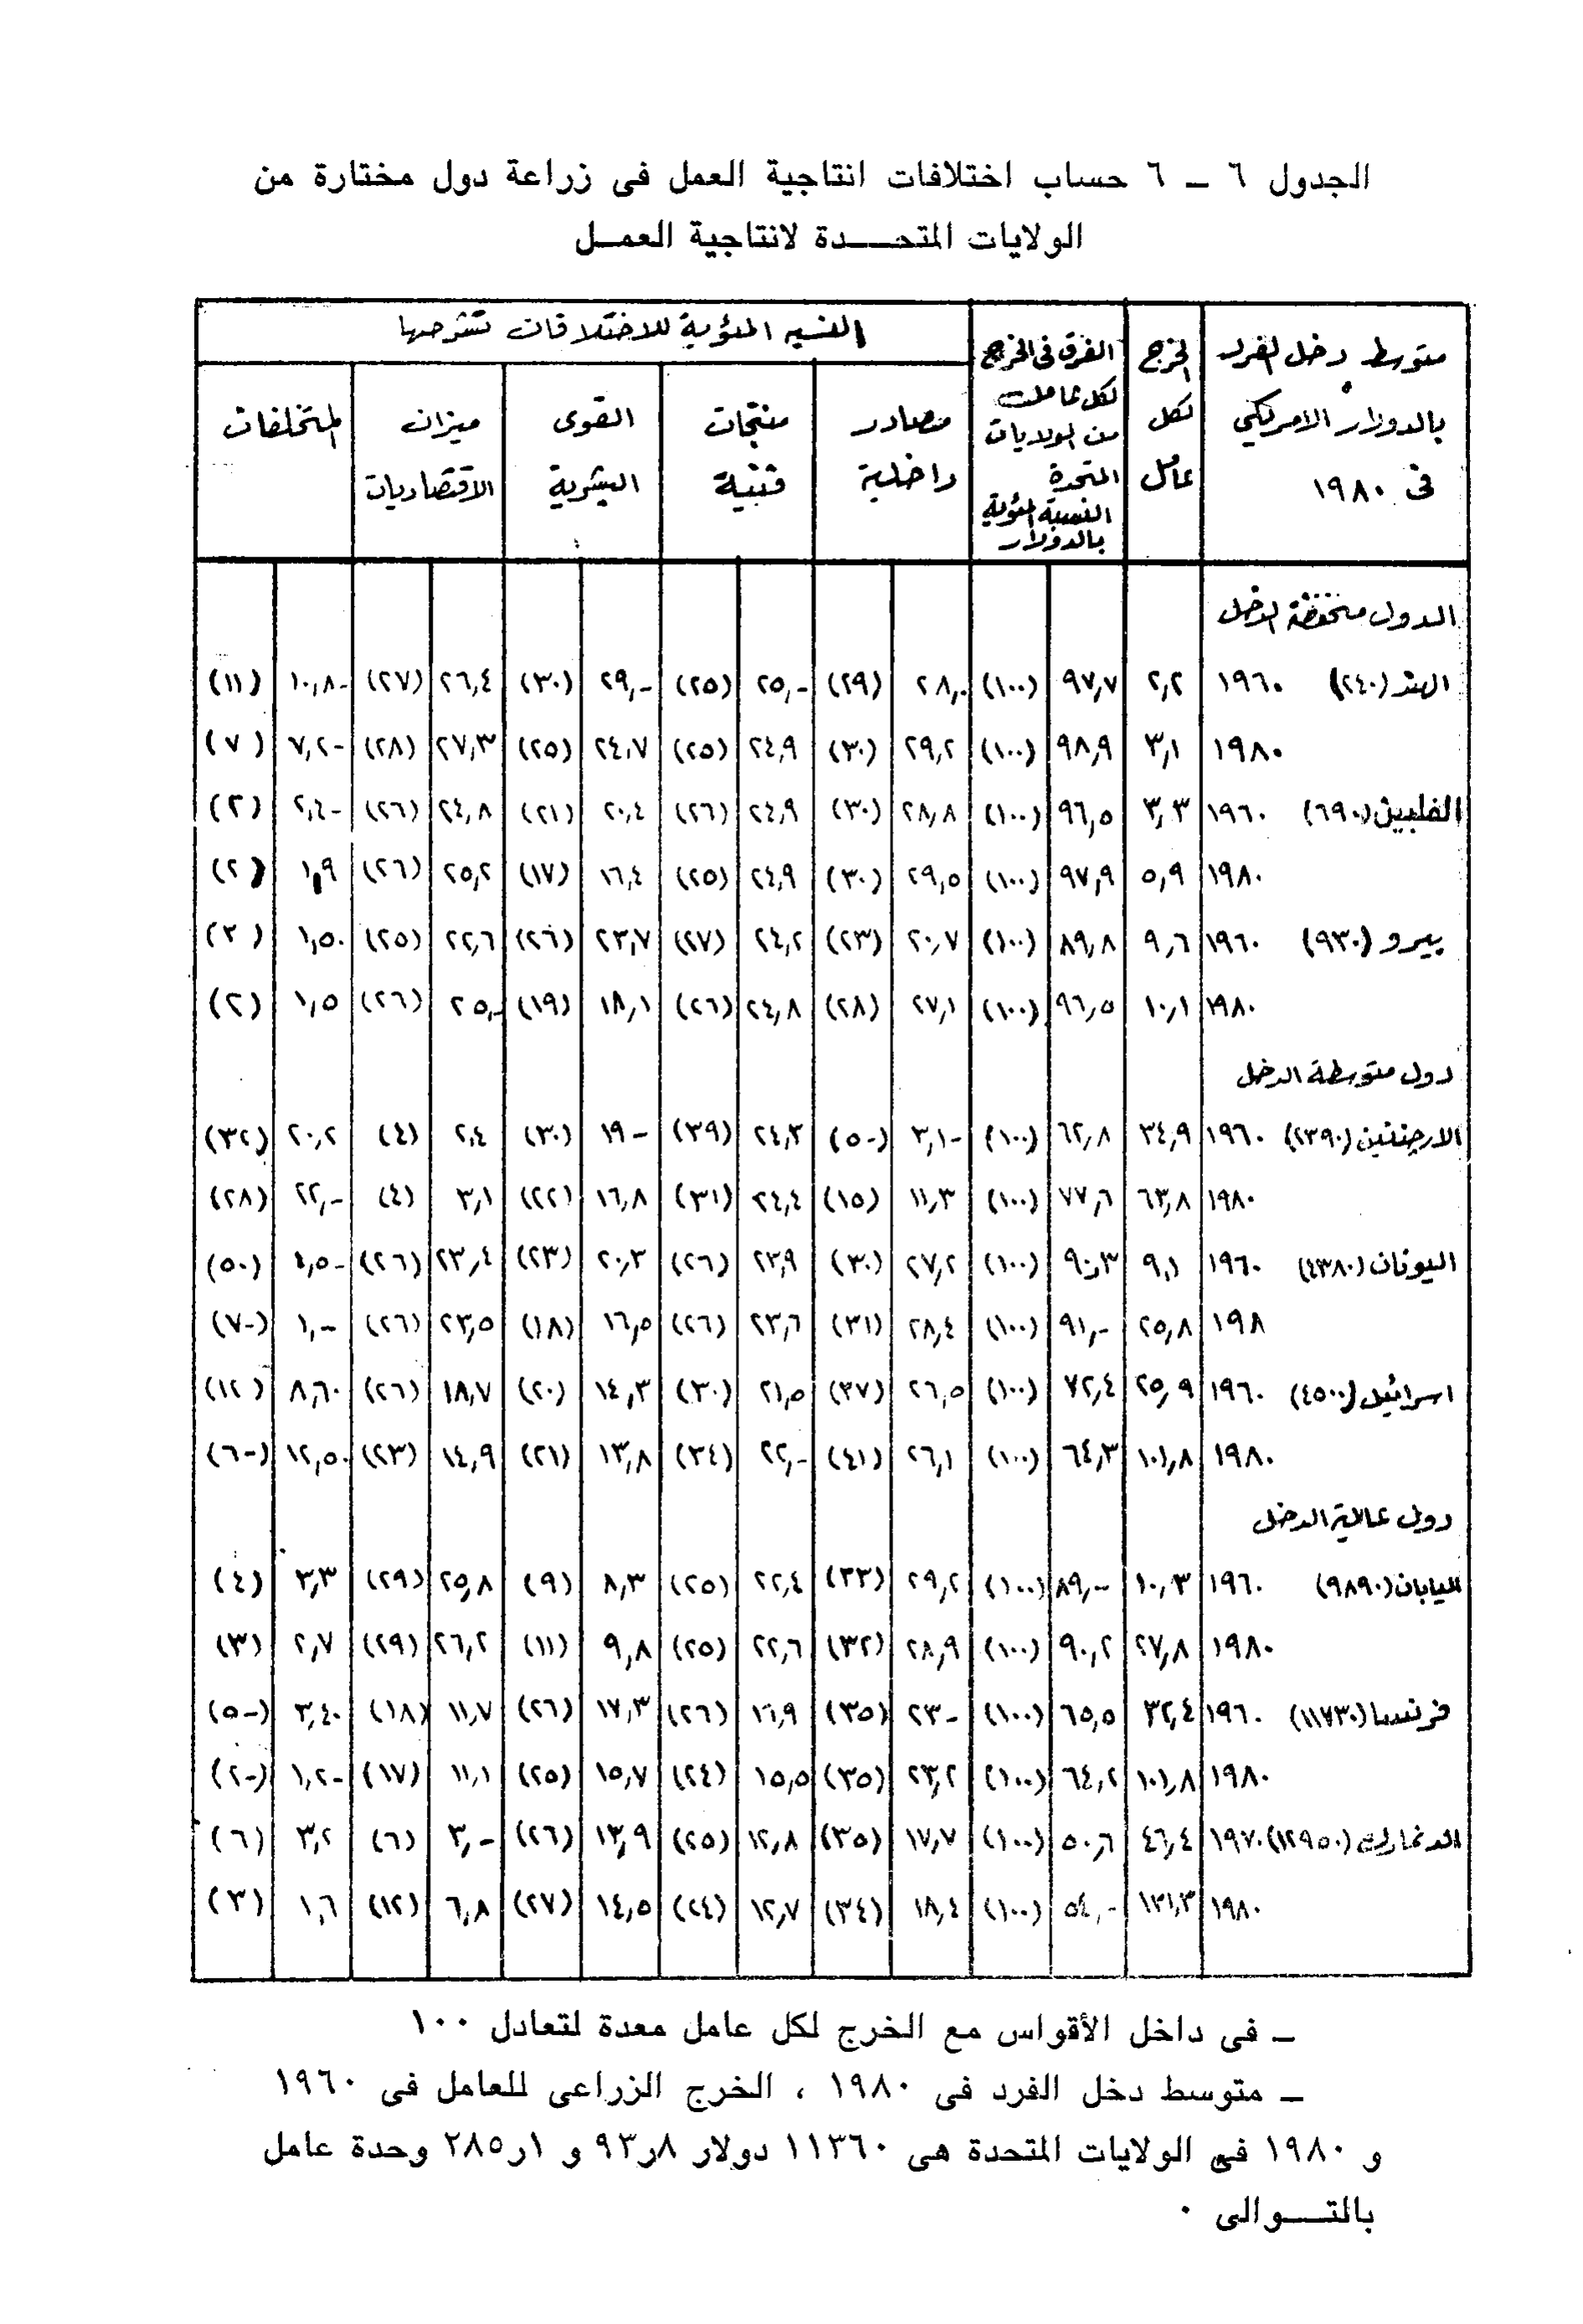 الجدول ٦ ــ ٦ حساب اختلافات انتاجية العمل فى زراعة دول مختارة من
الولايات المتحـــدة لانتاجية العمــل
متوسط دخل الفرد بالدولار الامريكي فى ١٩٨٠ الخرج لكل عامل الفرق فى الخرج لكل عامل من الولايات المتحدة النسبة المئوية بالدولار النسبه المئوية للاختلافات تشرحها
مصادر داخلية منتجات فنية القوى البشرية ميزان الاقتصاديات المتخلفات
الدول منخفظة الدخل
الهند (٢٤٠) ١٩٦٠ ٢,٢ ٩٧,٧ (١٠٠) ٢٨,٠ (٢٩) ٢٥,- (٢٥) ٢٩,- (٣٠) ٢٦,٤ (٢٧) ١٠,٨- (١١)
١٩٨٠ ٣,١ ٩٨,٩ (١٠٠) ٢٩,٢ (٣٠) ٢٤,٩ (٢٥) ٢٤,٧ (٢٥) ٢٧,٣ (٢٨) ٧,٢- (٧)
الفلبين (٦٩٠) ١٩٦٠ ٣,٣ ٩٦,٥ (١٠٠) ٢٨,٨ (٣٠) ٢٤,٩ (٢٦) ٢٠,٤ (٢١) ٢٤,٨ (٢٦) ٢,٤- (٢)
١٩٨٠ ٥,٩ ٩٧,٩ (١٠٠) ٢٩,٥ (٣٠) ٢٤,٩ (٢٥) ١٦,٤ (١٧) ٢٥,٢ (٢٦) ١,٩ (٢)
بيرو (٩٣٠) ١٩٦٠ ٩,٦ ٨٩,٨ (١٠٠) ٢٠,٧ (٢٣) ٢٤,٢ (٢٧) ٢٣,٧ (٢٦) ٢٢,٦ (٢٥) ١,٥٠ (٢)
١٩٨٠ ١٠,١ ٩٦,٥ (١٠٠) ٢٧,١ (٢٨) ٢٤,٨ (٢٦) ١٨,١ (١٩) ٢٥,- (٢٦) ١,٥ (٢)
دول متوسطة الدخل
الارجنتين (٢٣٩٠) ١٩٦٠ ٣٤,٩ ٦٢,٨ (١٠٠) ٣,١- (-٥) ٢٤,٣ (٣٩) ١٩- (٣٠) ٢,٤ (٤) ٢٠,٢ (٣٢)
١٩٨٠ ٦٣,٨ ٧٧,٦ (١٠٠) ١١,٣ (١٥) ٢٤,٤ (٣١) ١٦,٨ (٢٢) ٣,١ (٤) ٢٢,- (٢٨)
اليونان (٤٣٨٠) ١٩٦٠ ٩,١ ٩٠,٣ (١٠٠) ٢٧,٢ (٣٠) ٢٣,٩ (٢٦) ٢٠,٣ (٢٣) ٢٣,٤ (٢٦) ٤,٥- (٥٠)
١٩٨ ٢٥,٨ ٩١,- (١٠٠) ٢٨,٤ (٣١) ٢٣,٦ (٢٦) ١٦,٥ (١٨) ٢٣,٥ (٢٦) ١,- (-٧)
اسرائيل (٤٥٠٠) ١٩٦٠ ٢٥,٩ ٧٢,٤ (١٠٠) ٢٦,٥ (٣٧) ٢١,٥ (٣٠) ١٤,٣ (٢٠) ١٨,٧ (٢٦) ٨,٦٠ (١٢)
١٩٨٠ ١٠١,٨ ٦٤,٣ (١٠٠) ٢٦,١ (٤١) ٢٢,- (٣٤) ١٣,٨ (٢١) ١٤,٩ (٢٣) ١٢,٥٠ (-٦)
دول عالية الدخل
اليابان (٩٨٩٠) ١٩٦٠ ١٠,٣ ٨٩,- (١٠٠) ٢٩,٢ (٣٣) ٢٢,٤ (٢٥) ٨,٣ (٩) ٢٥,٨ (٢٩) ٣,٣ (٤)
١٩٨٠ ٢٧,٨ ٩٠,٢ (١٠٠) ٢٨,٩ (٣٢) ٢٢,٦ (٢٥) ٩,٨ (١١) ٢٦,٢ (٢٩) ٢,٧ (٣)
فرنسا (١١٧٣٠) ١٩٦٠ ٣٢,٤ ٦٥,٥ (١٠٠) ٢٣- (٣٥) ١٦,٩ (٢٦) ١٧,٣ (٢٦) ١١,٧ (١٨) ٣,٤٠ (-٥)
١٩٨٠ ١٠١,٨ ٦٤,٢ (١٠٠) ٢٣,٢ (٣٥) ١٥,٥ (٢٤) ١٥,٧ (٢٥) ١١,١ (١٧) ١,٢- (-٢)
الدنمارك (١٢٩٥٠) ١٩٧٠ ٤٦,٤ ٥٠,٦ (١٠٠) ١٧,٧ (٣٥) ١٢,٨ (٢٥) ١٣,٩ (٢٦) ٣,- (٦) ٣,٢ (٦)
١٩٨٠ ١٣١,٣ ٥٤,- (١٠٠) ١٨,٤ (٣٤) ١٢,٧ (٢٤) ١٤,٥ (٢٧) ٦,٨ (١٢) ١,٦ (٣)
ــ فى داخل الأقواس مع الخرج لكل عامل معدة لتعادل ١٠٠
ــ متوسط دخل الفرد فى ١٩٨٠ ، الخرج الزراعى للعامل فى ١٩٦٠
و ١٩٨٠ فى الولايات المتحدة هى ١١٣٦٠ دولار ٨ر٩٣ و ١ر٢٨٥ وحدة عامل
بالتـــوالى ٠